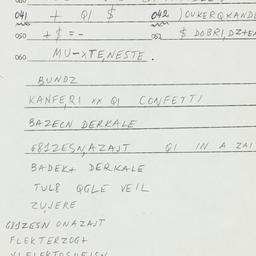 041 + QI $ 042 )OUKERQKANDE
050 + $ = - 052 $ DOBRI, DZ+EN
060 MU-XTE,NESTE.
BUNDZ
KANFERI xx QI CONFETTI
BAZECN DERKALE
681ZESNAZAJT QI IN A ZAI
BADEK+ DERKALE
TUL8 QGLE VEIL
ZUJERE
681ZESN ONAZAJT
FLEKTERZOG+